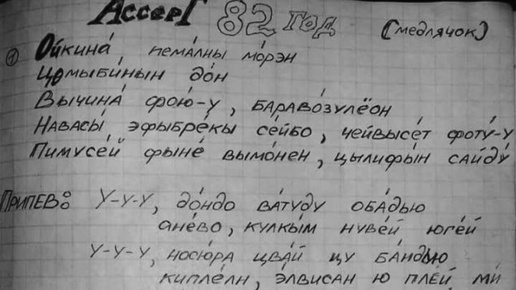 АссерТ 82 ГОД (медлячок)
① Ойкина́ пема́лны мо́рэн
Цомыби́нын до́н
Вычина́ фою́-у, барово́зулёон
Навасы́ эфыбре́кы се́йбо, чейвысе́т фоту́-у
Пимусе́й фыне́ вымо́нен, цылифы́н сайду́
Припев: У-у-у, до́ндо ва́туду оба́дью
ане́во, кулкы́м нуве́й юге́й
У-у-у, носю́ра цва́й цу ба́ндью
кипле́лн, э́лвисан ю пле́й ми